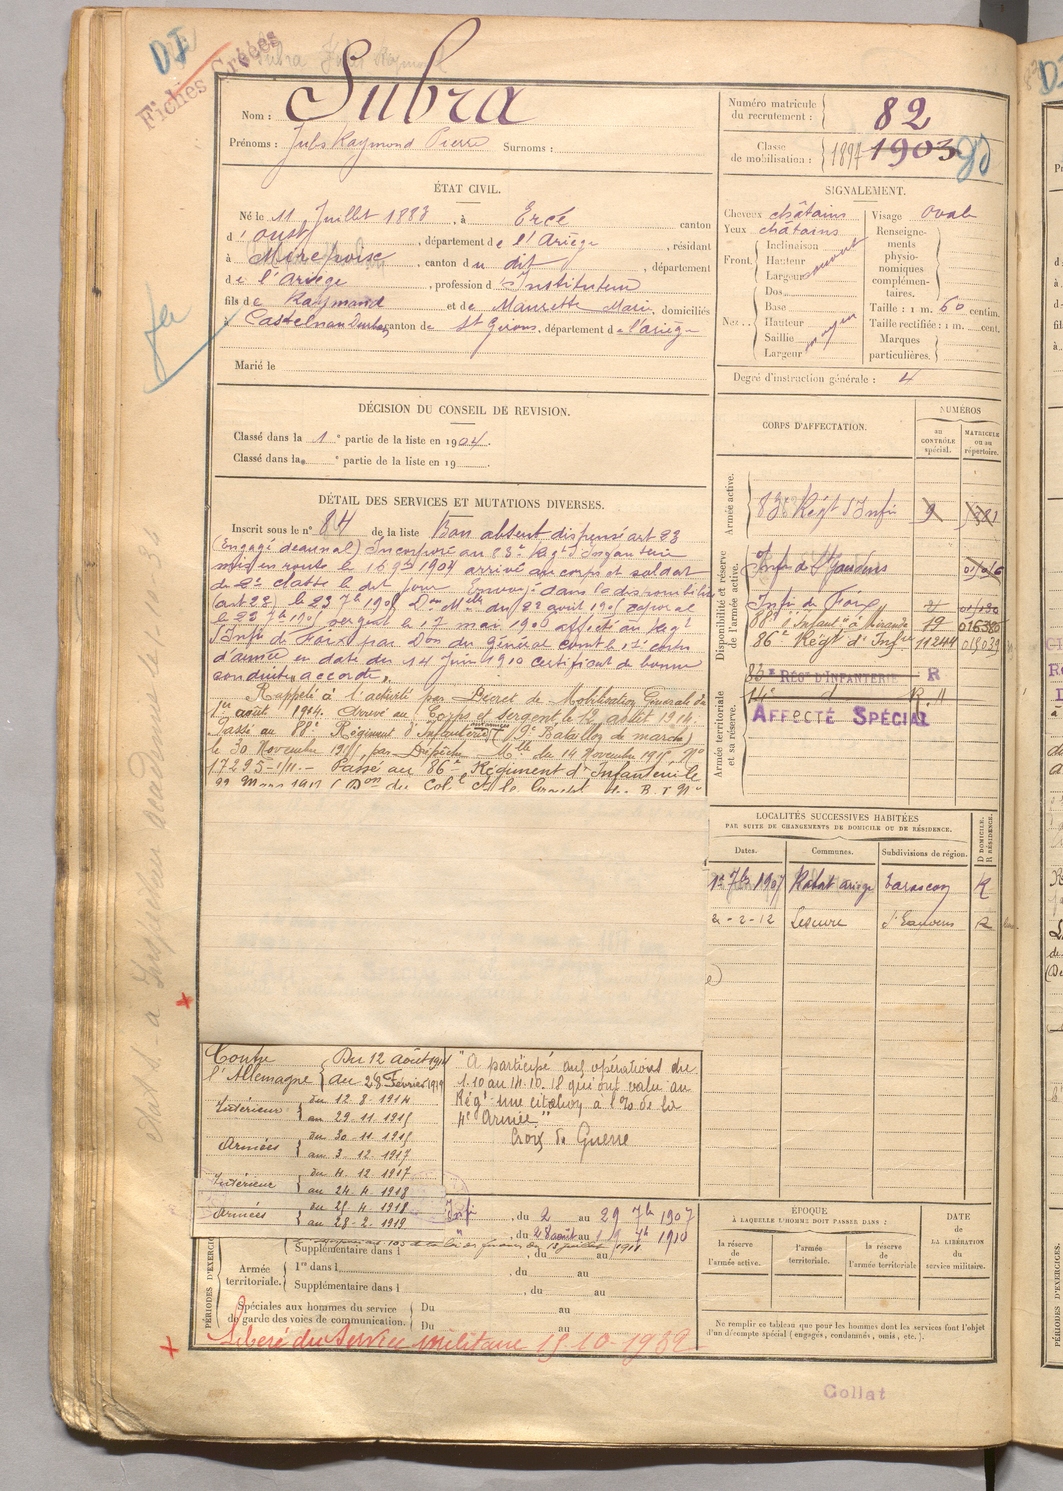 DI
Fiches Créées
Subra
Nom : Subra
Prénoms : Jules Raymond Pierre Surnoms :
Numéro matricule du recrutement : 82
Classe de mobilisation : 1897 1903
ÉTAT CIVIL.
Né le 11 Juillet 1883, à Ercé canton
d'oust, département de l'Ariège, résidant
à Mirepoix, canton du dit, département
de l'Ariège, profession d'Instituteur
fils de Raymond et de Maurette Marie, domiciliés
à Castelnau Durban, canton de St Girons, département de l'ariège
Marié le
SIGNALEMENT.
Cheveux châtains
Yeux châtains
Front. Inclinaison
Hauteur
Largeur
Nez. Dos
Base
Hauteur
Saillie
Largeur
moyen
Visage Ovale
Renseignements physionomiques complémentaires.
Taille : 1 m. 60 centim.
Taille rectifiée : 1 m. cent.
Marques particulières.
Degré d'instruction générale : 4
DÉCISION DU CONSEIL DE REVISION.
Classé dans la 1e partie de la liste en 1904.
Classé dans la e partie de la liste en 19 .
DÉTAIL DES SERVICES ET MUTATIONS DIVERSES.
Inscrit sous le n° 84 de la liste Bon absent dispensé art 23
(Engagé décennal) Incorporé au 83e Régt d'Infanterie
mis en route le 16 9bre 1904 arrivé au corps et soldat
de 2e classe le dit jour Envoyé dans la disponibilité
(art 23) le 23 7bre 1905 Don Mlle du 22 août 1905 caporal
le 23 7bre 1905 sergent le 17 mai 1906 affecté au Régt
d'Infie de Foix par Don du Général comt le 17e corps
d'armée en date du 14 Juin 1910 certificat de bonne
conduite "accordé".
Rappelé à l'activité par Décret de Mobilisation Générale du
1er août 1914. Arrivé au Corps et sergent le 12 août 1914.
Passé au 88e Régiment d'Infanterie (9e Bataillon de marche)
le 30 Novembre 1915 par Dépêche Mlle du 14 Novembre 1915 No
17295-1/11.- Passé au 86e Régiment d'Infanterie le
CORPS D'AFFECTATION.
NUMÉROS
au CONTRÔLE spécial.
MATRICULE ou au répertoire.
Armée active.
83e Régt d'Infie
Disponibilité et réserve de l'armée active.
Infie de St Gaudens
Infie de Foix
88e d'Infant à Mirande 19 016380
86e Régt d'Infie 11244 015039
Armée territoriale et sa réserve.
83e RÉGt D'INFANTERIE R
AFFECTÉ SPÉCIAL
LOCALITÉS SUCCESSIVES HABITÉES
PAR SUITE DE CHANGEMENTS DE DOMICILE OU DE RÉSIDENCE.
Dates. Communes. Subdivisions de région. D DOMICILE. R RÉSIDENCE.
1er 7bre 1907 Rabat ariège Tarascon R
2-2-12 Lescure R
Contre l'Allemagne Du 12 Août 1914
au 28 Février 1919
Intérieur du 12.8.1914
au 29.11.1915
Armées du 30.11.1915
au 3.12.1917
Intérieur du 4.12.1917
au 24.4.1918
Armées du 25.4.1918
au 28.2.1919
"A participé aux opérations du
1.10 au 14.10.18 qui ont valu au
Régt une citation à l'O de la
4e Armée."
Croix de Guerre
Infie, du 2 au 29 7bre 1907
", du 28 août au 19 7bre 1910
Supplémentaire dans l , du au
Armée territoriale. 1re dans l , du au
Supplémentaire dans l , du au
Spéciales aux hommes du service de garde des voies de communication. Du au
Du au
PÉRIODES D'EXERCICES
Libéré du Service militaire 15-10-1932
ÉPOQUE
À LAQUELLE L'HOMME DOIT PASSER DANS :
la réserve de l'armée active.
l'armée territoriale.
la réserve de l'armée territoriale
DATE de LA LIBÉRATION du service militaire.
Ne remplir ce tableau que pour les hommes dont les services font l'objet
d'un décompte spécial (engagés, condamnés, omis, etc.).
Collat